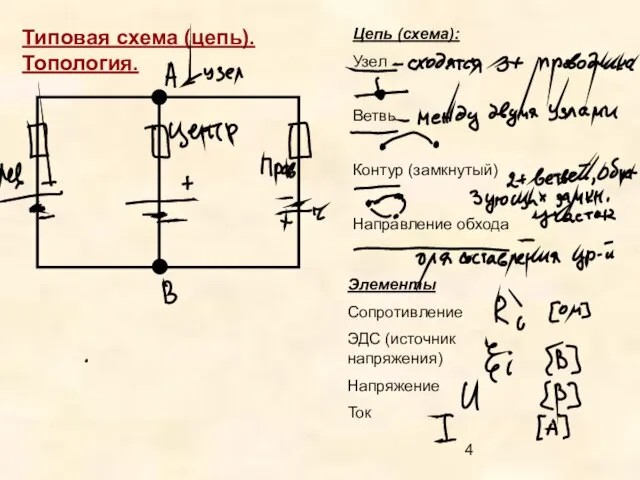 Типовая схема (цепь).
Топология.
А
узел
центр
Прав
+
+
+
В
Цепь (схема):
Узел – сходятся 3+ проводника
Ветвь – между двумя узлами
Контур (замкнутый) 2+ ветвей, образ
зующих замкн.
участок
Направление обхода
для составления ур-й
Элементы
Сопротивление Ri [ом]
ЭДС (источник
напряжения) Ei [В]
Напряжение U [В]
Ток I [А]
4